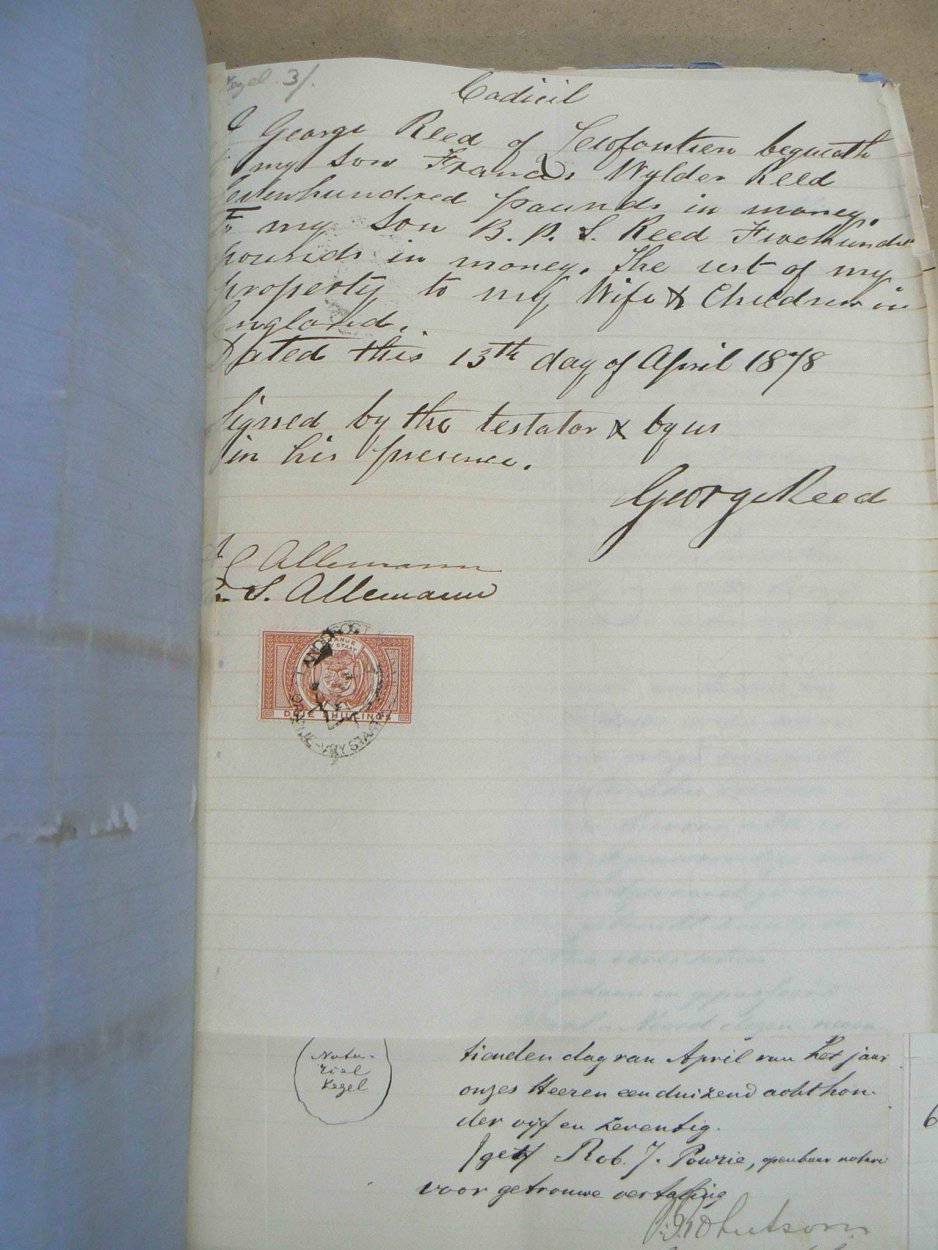 Zegel 3/.
Codicil
I George Reed of bequeath
my Son Francis Wylder Reed
hundred pounds in money.
To my Son B. P. S. Reed Fivehundred
pounds in money. The rest of my
property to my Wife & Children in
England.
Dated this 13th day of April 1878
Signed by the testator & by us
in his presence.
George Reed
C Allemann
S. Allemann
LANDDROST
ORANJE
VRYSTAAT
DRIE SHILLINGS
ORANJE-VRYSTAAT
Nota-
riel
Zegel
tienden dag van April van het jaar
onzes Heeren eenduizend acht hon-
der vijf en zeventig.
(get) Rob. J. Powrie, openbaar notaris
voor getrouwe vertaling
6